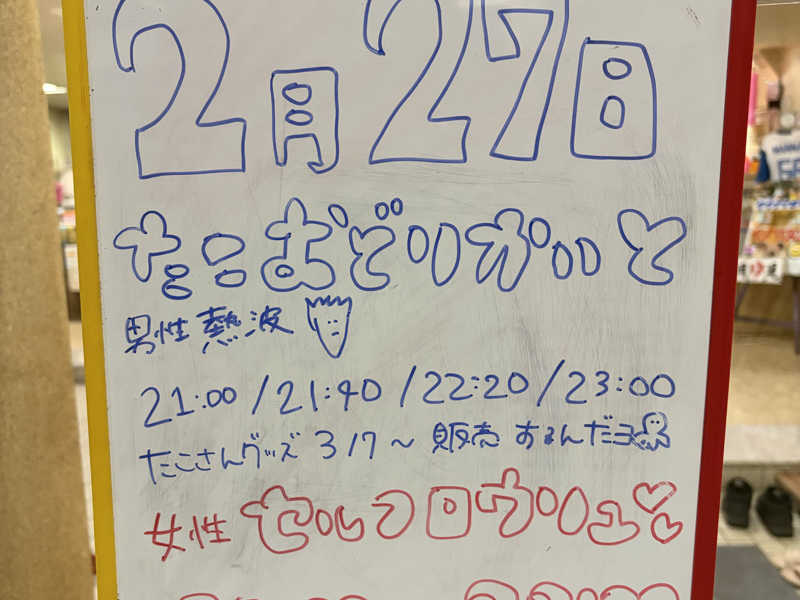 2月27日
たこおどりがいと
男性 熱波
21:00 / 21:40 / 22:20 / 23:00
たこさんグッズ 3/7～ 販売 するんだコ
女性 セルフロウリュ